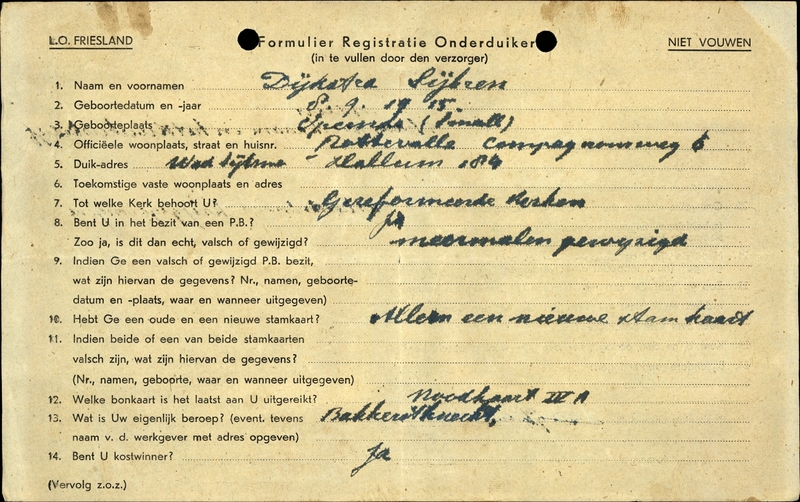 L.O. FRIESLAND
Formulier Registratie Onderduiker
NIET VOUWEN
(in te vullen door den verzorger)
1. Naam en voornamen Dijkstra Sijbren
2. Geboortedatum en -jaar 8. 9. 1915.
3. Geboorteplaats Opeinde (Small)
4. Officiëele woonplaats, straat en huisnr. Rottevalle Compagnonsweg 6
5. Duik-adres Wed Sijtsma Hallum 184
6. Toekomstige vaste woonplaats en adres
7. Tot welke Kerk behoort U? Gereformeerde Kerken
8. Bent U in het bezit van een P.B.? Ja
Zoo ja, is dit dan echt, valsch of gewijzigd? meermalen gewijzigd
9. Indien Ge een valsch of gewijzigd P.B. bezit,
wat zijn hiervan de gegevens? Nr., namen, geboorte-
datum en -plaats, waar en wanneer uitgegeven)
10. Hebt Ge een oude en een nieuwe stamkaart? Alleen een nieuwe stamkaart
11. Indien beide of een van beide stamkaarten
valsch zijn, wat zijn hiervan de gegevens?
(Nr., namen, geboorte, waar en wanneer uitgegeven)
12. Welke bonkaart is het laatst aan U uitgereikt? Noodkaart IV A
13. Wat is Uw eigenlijk beroep? (event. tevens Bakkersknecht,
naam v. d. werkgever met adres opgeven)
14. Bent U kostwinner? Ja
(Vervolg z.o.z.)